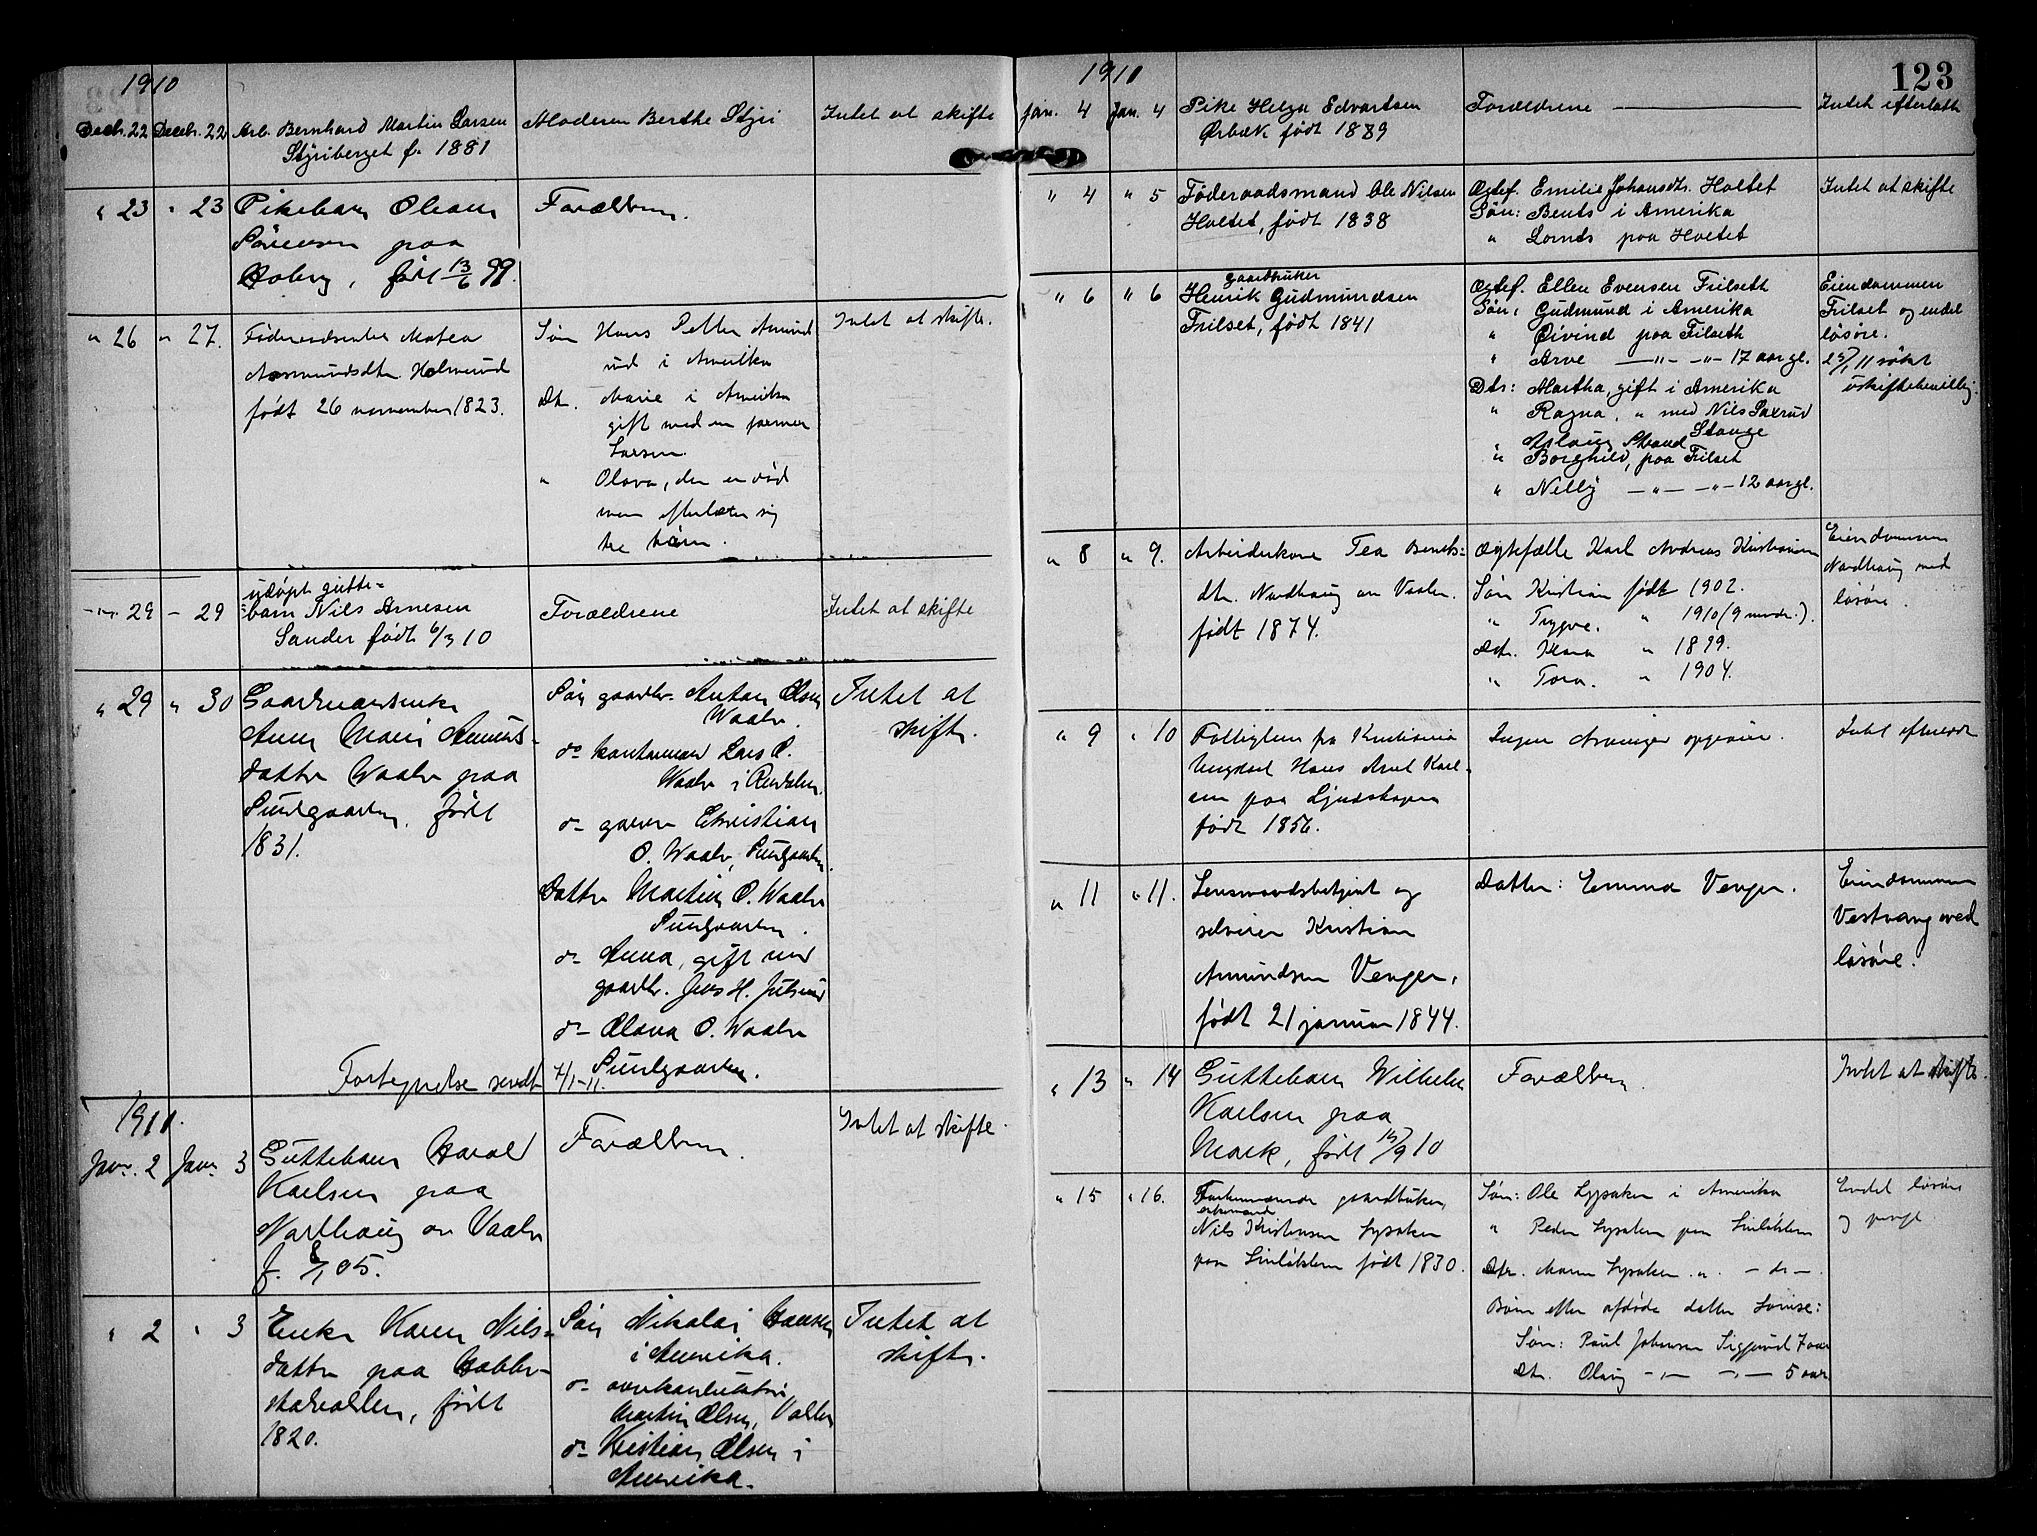 1910
Decbr. 22 Decbr. 22 Arb. Bernhard Martin Larsen
Styriberget f. 1881
Moderen Berthe Styri
Intet at skifte
" 23 " 23 Pikebarn
Sørensen paa
født 13/6 99.
Forældrene.
" 26 " 27. Føderaadsenke Matea
Aasmundsdtr.
født 26 november 1823.
Søn Hans Petter
ud i Amerika
Dt. Marie i Amerika
gift med en farmer
Larsen.
" Olava, der er død
men efterlater sig
tre børn.
Intet at skifte.
29 - 29 udøpt gutte=
=barn Nils Arnesen
Sander født 6/3 10
Forældrene
Intet at skifte
" 29 " 30 Gaardmandsenke
Anne Marie
datter Waaler paa
Sundgaarden, født
1831.
Søn gaardbr. Anton Olsen
Waaler.
do kantonnier Lars O.
Waaler i Rendalen.
do Christian
O. Waaler, Sundgaarden.
Datter Martine O. Waaler
Sundgaarden.
do Anna, gift med
gaardbr. Jens H. Julsrud
do Olava O. Waaler
Sundgaarden.
Intet at
skifte.
Fortegnelse sendt 4/1-11.
1911.
Janr. 2 Janr. 3 Guttebarn Harald
Karlsen paa
Nordhaug av Vaaler
f. 8/1 05.
Forældrene.
Intet at skifte.
" 2 " 3 Enke Karen Nils-
datter paa
født
1820.
Søn Nikolai Hansen
i Amerika.
do
Martin Olsen, Valler
do Kristian Olsen i
Amerika.
Intet at
skifte.
123
1911
Jan. 4 Jan. 4 Pike Helga Edvartsen
Ørbæk født 1889
Forældrene
Intet efterlatt
" 4 " 5 Føderaadsmand Ole Nilsen
Holtet, født 1838
Ægtef. Emilie Johansdtr. Holtet
Søn: Bernts i Amerika
" Lornds paa Holtet
Intet at skifte
" 6 " 6 gaardbruker
Henrik Gudmundsen
Frilset, født 1841
Ægtef. Ellen Evensen Frilseth
Søn, Gudmund i Amerika
" Øivind paa Frilseth
" Arve — " — " — 17 aar gl.
Dtr: Martha, gift i Amerika
" Ragna, " med Nils Saxrud
Stange
" Aslaug Strand
" Borghild, paa Frilset
" Nelly — " — " — 12 aar gl.
Eiendommen
Frilset og endel
løsøre.
25/1 11 søkt
uskiftebevilling.
" 8 " 9. Arbeiderkone Tea Bernts=
dtr. Nordhaug av Vaaler.
født 1874.
Ægtefælle Karl Andreas Kristiansen
Søn Kristian født 1902.
" Trygve. " 1910 (9 mndr.).
Dtr. Klara " 1899.
" Tora. " 1904.
Eiendommen
Nordhaug med
løsøre.
" 9 " 10 Fattiglem fra Kristiania
Hans Axel Karl-
sen paa
født 1856.
Ingen Arvinger opgivne.
Intet efterladt
" 11 " 11. Lensmandsbetjent og
selveier Kristian
Amundsen Venger,
født 21 januar 1844.
Datter: Emma Venger.
Eiendommen
Vestvang med
løsøre.
" 13 " 14 Guttebarn Wilhelm
Karlsen paa
Mork, født 15/9 10
Forældrene.
Intet at skifte.
" 15 " 16. Forhenværende gaardbruker,
enkemand
Nils Kristensen Lysaker
paa født 1830.
Søn: Ole Lysaker i Amerika
" Peder Lysaker paa
Dtr. Maren Lysaker " — do —.
Børn efter afdøde datter Lovise:
Søn: Paul Johansen Sigjurd 7 aar
Dtr. Olaug — " — — " — 5 aar
Endel løsøre
og penge